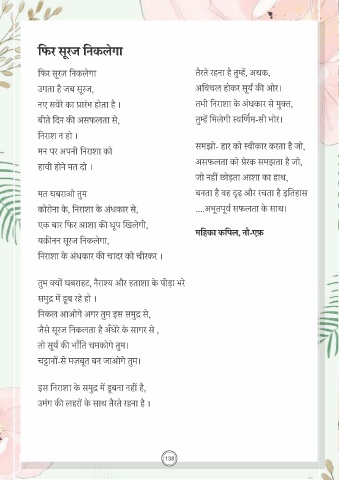 फिर सूरज निकलेगा
फिर सूरज निकलेगा
उगता है जब सूरज,
नए सवेरे का प्रारंभ होता है ।
बीते दिन की असफलता से,
निराश न हो ।
मन पर अपनी निराशा को
हावी होने मत दो ।
मत घबराओ तुम
कोरोना के, निराशा के अंधकार से,
एक बार फिर आशा की धूप खिलेगी,
यक़ीनन सूरज निकलेगा,
निराशा के अंधकार की चादर को चीरकर ।
तुम क्यों घबराहट, नैराश्य और हताशा के पीड़ा भरे
समुद्र में डूब रहे हो ।
निकल आओगे अगर तुम इस समुद्र से,
जैसे सूरज निकलता है अँधेरे के सागर से ,
तो सूर्य की भाँति चमकोगे तुम।
चट्टानों-से मज़बूत बन जाओगे तुम।
इस निराशा के समुद्र में डूबना नहीं है,
उमंग की लहरों के साथ तैरते रहना है ।
तैरते रहना है तुम्हें, अथक,
अविचल होकर सूर्य की ओर।
तभी निराशा के अंधकार से मुक्त,
तुम्हें मिलेगी स्वर्णिम-सी भोर।
समझो- हार को स्वीकार करता है जो,
असफलता को प्रेरक समझता है जो,
जो नहीं छोड़ता आशा का हाथ,
बनता है वह दृढ़ और रचता है इतिहास
....अभूतपूर्व सफलता के साथ।
महिका कपिल, नौ-एफ़
138